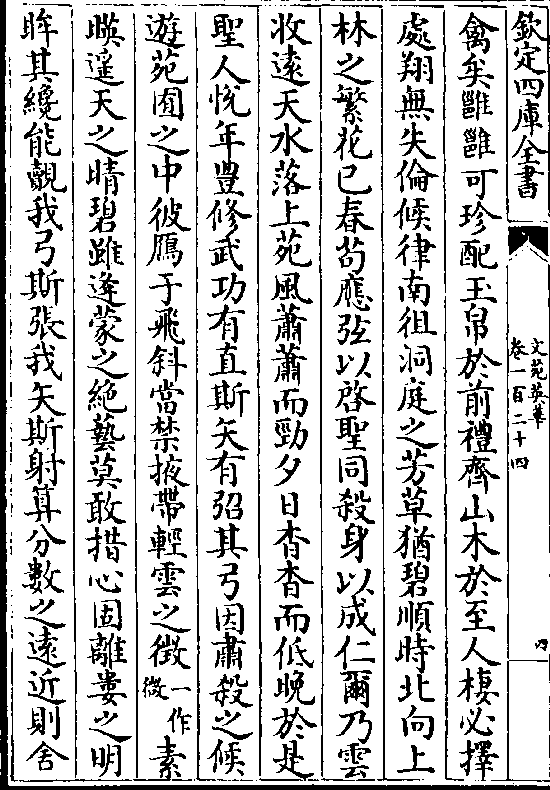 欽定四庫全書
文苑英華
卷一百二十四
四
禽矣雝雝可珍配玉帛於前禮齊山木於至人棲必擇
處翔無失倫候律南徂洞庭之芳草猶碧順時北向上
林之繁花已春苟應弦以啓聖同殺身以成仁爾乃雲
收遠天水落上苑風蕭蕭而勁夕日杳杳而低晚於是
聖人恱年豐修武功有直斯矢有弨其弓因肅殺之候
遊苑囿之中彼鴈于飛斜當禁掖帶輕雲之徴一作微素
暎遥天之晴碧雖逄蒙之絶藝莫敢措心固離婁之明
眸其纔能覿我弓斯張我矢斯射算分數之遠近則舍